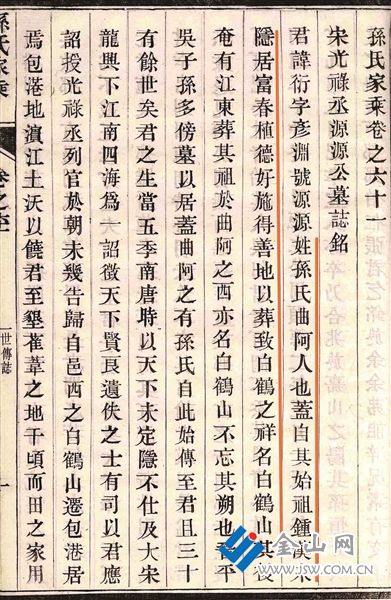 孫氏家乘卷之六十一
宋光祿丞源源公墓誌銘
君諱衍字彥淵號源源姓孫氏曲阿人也蓋自其始祖鍾漢末
隱居富春植德好施得善地以葬致白鶴之祥名白鶴山其後
奄有江東葬其祖於曲阿之西亦名白鶴山不忘其朔也平
吳子孫多傍墓以居蓋曲阿之有孫氏自此始傳至君且三十
有餘世矣君之生當五季南唐時以天下未定隱不仕及大宋
龍興下江南四海爲一詔徵天下賢良遺佚之士有司以君應
詔授光祿丞列官於朝未幾告歸自邑西之白鶴山遷包港居
焉包港地濵江土沃以饒君至墾萑葦之地千頃而田之家用
孫氏家乘
卷之
世傳誌
一
金山网